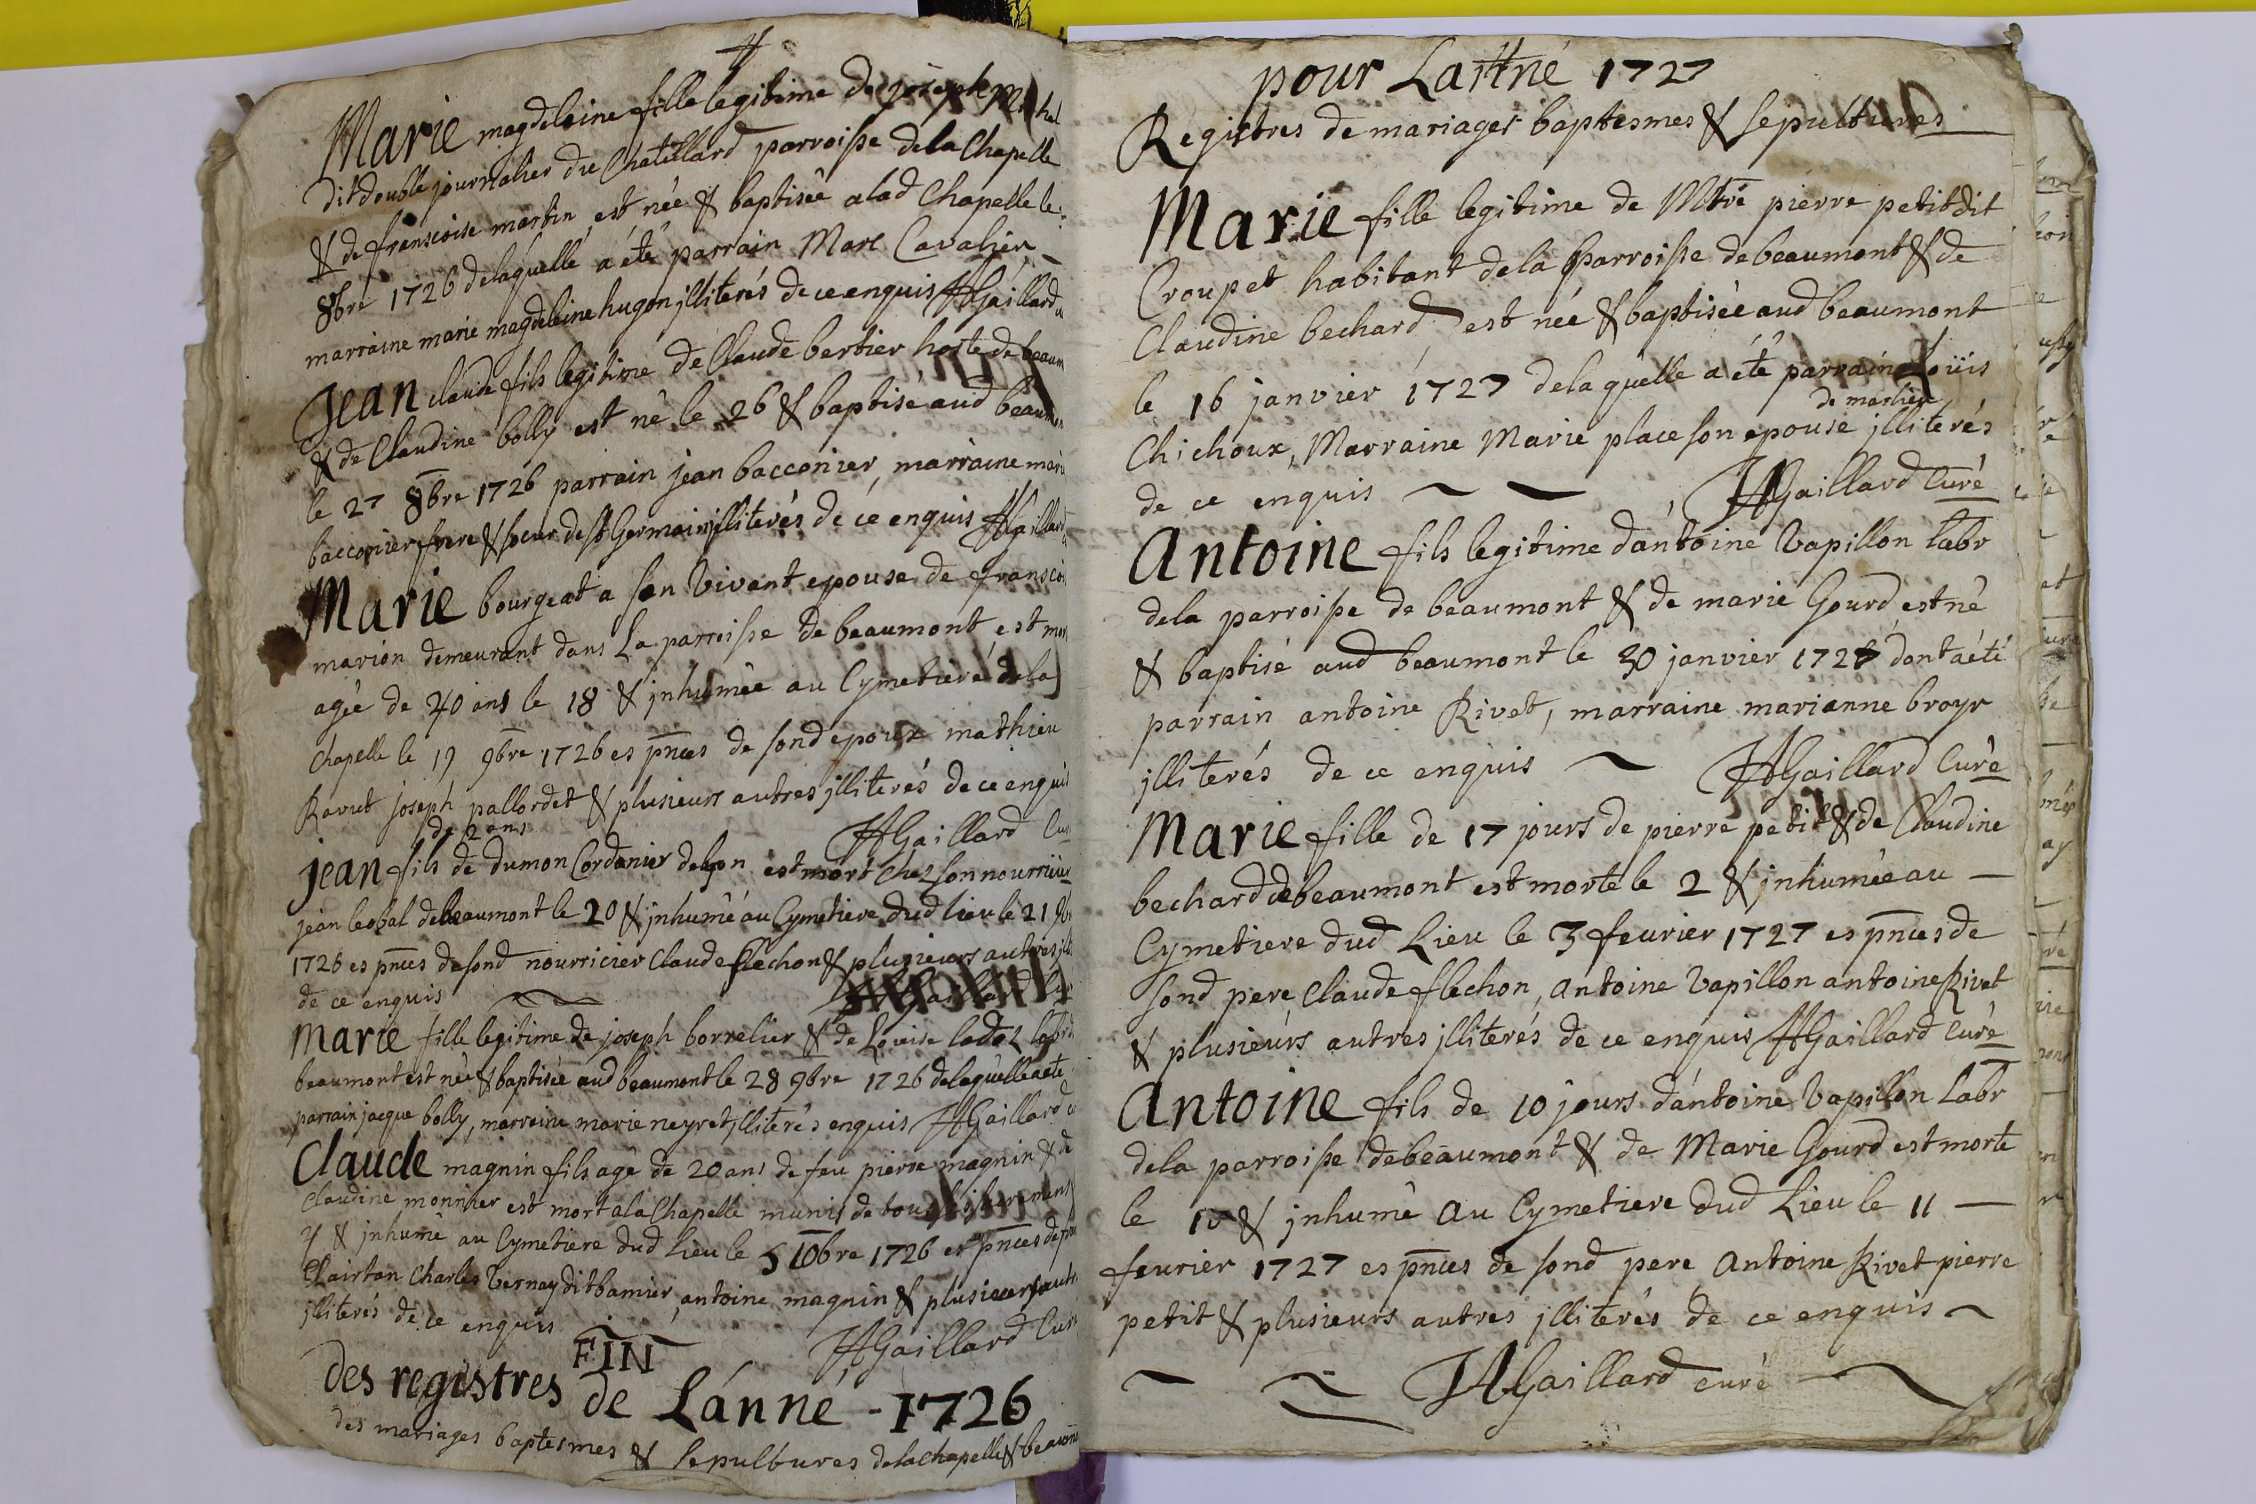 Marie magdeleine fille legitime de joseph Michel
dit double journalier du Chatillard parroisse de la Chapelle
& de franscoise martin est née & baptisée alad Chapelle le
8bre 1726 delaquelle a été parrain Marc Cavalier
marraine marie magdeleine hugon jlliterés de ce enquis JAGaillard
Jean claude fils legitime de Claude bertier hoste de beaum
& de Claudine bolly est né le 26 & baptisé aud beaumon
le 27 8bre 1726 parrain jean bacconier, marraine marie
bacconier frere & soeur de St Germain jlliterés de ce enquis JAGaillard
Marie bourgeat a son vivant epouse de franscoi
marion demeurant dans La parroisse de beaumont est mor
agée de 40 ans le 18 & jnhumée au Cymetiere dela
chapelle le 19 9bre 1726 es pnces de sond epoux mathieu
Ravut joseph pallordet & plusieurs autres jlliterés de ce enquis
JAGaillard Cur
de 2 ans
jean fils de dumon Cordanier de lyon est mort chez son nourricier
jean de beaumont le 20 & jnhumé au Cymetiere dud lieu le 21 9br
1726 es pnces de sond nourricier Claude flechon & plusieurs autres jlli
de ce enquis JAGaillard Cur
Marie fille legitime de joseph borrelier & de Louise labr
beaumont est née & baptisée aud beaumont le 28 9bre 1726 de laquelle a ete
parrain jacque bolly, marraine marie neyret jlliterés enquis JAGaillard c
Claude magnin fils agé de 20 ans de feu pierre magnin & de
Claudine monnier est mort ala Chapelle munis de tous les sacremens
4 & jnhumé au Cymetiere dud Lieu le 5 10bre 1726 es pnces de
Clairton Charles Vernay dit bamier, antoine magnin & plusieurs autr
jlliterés de ce enquis JAGaillard Cur
FIN
des registres de Lánné - 1726
des mariages baptesmes & sepultures dela chapelle & beaumon
pour Lánné 1727
Registres de mariages baptesmes & sepultures
Marie fille legitime de Mtre pierre petit dit
Croupet habitant dela parroisse de beaumont & de
Claudine bechard est née & baptisée aud beaumont
le 16 janvier 1727 dela quelle a été parrain Loüis
de marlieu
Chichoux, Marraine Marie place son epouse jlliterés
de ce enquis JAGaillard Curé
Antoine fils legitime dántoine Vapillon labr
dela parroisse de beaumont & de marie Gourd est né
& baptisé aud beaumont le 30 janvier 1727 dont a été
parrain antoine Rivet, marraine marianne broyr
jlliterés de ce enquis JAGaillard Curé
Marie fille de 17 jours de pierre petit & de Claudine
bechard de beaumont est morte le 2 & jnhumée au
Cymetiere dud Lieu le 3 feurier 1727 es pnces de
sond pere Claude flechon, antoine Vapillon antoine Rivet
& plusieurs autres jlliterés de ce enquis JAGaillard Curé
Antoine fils de 10 jours dántoine Vapillon Labr
dela parroisse de beaumont & de Marie Gourd est morte
le 10 & jnhumé au Cymetiere dud Lieu le 11
feurier 1727 es pnces de sond pere Antoine Rivet pierre
petit & plusieurs autres jlliterés de ce enquis
JAGaillard curé